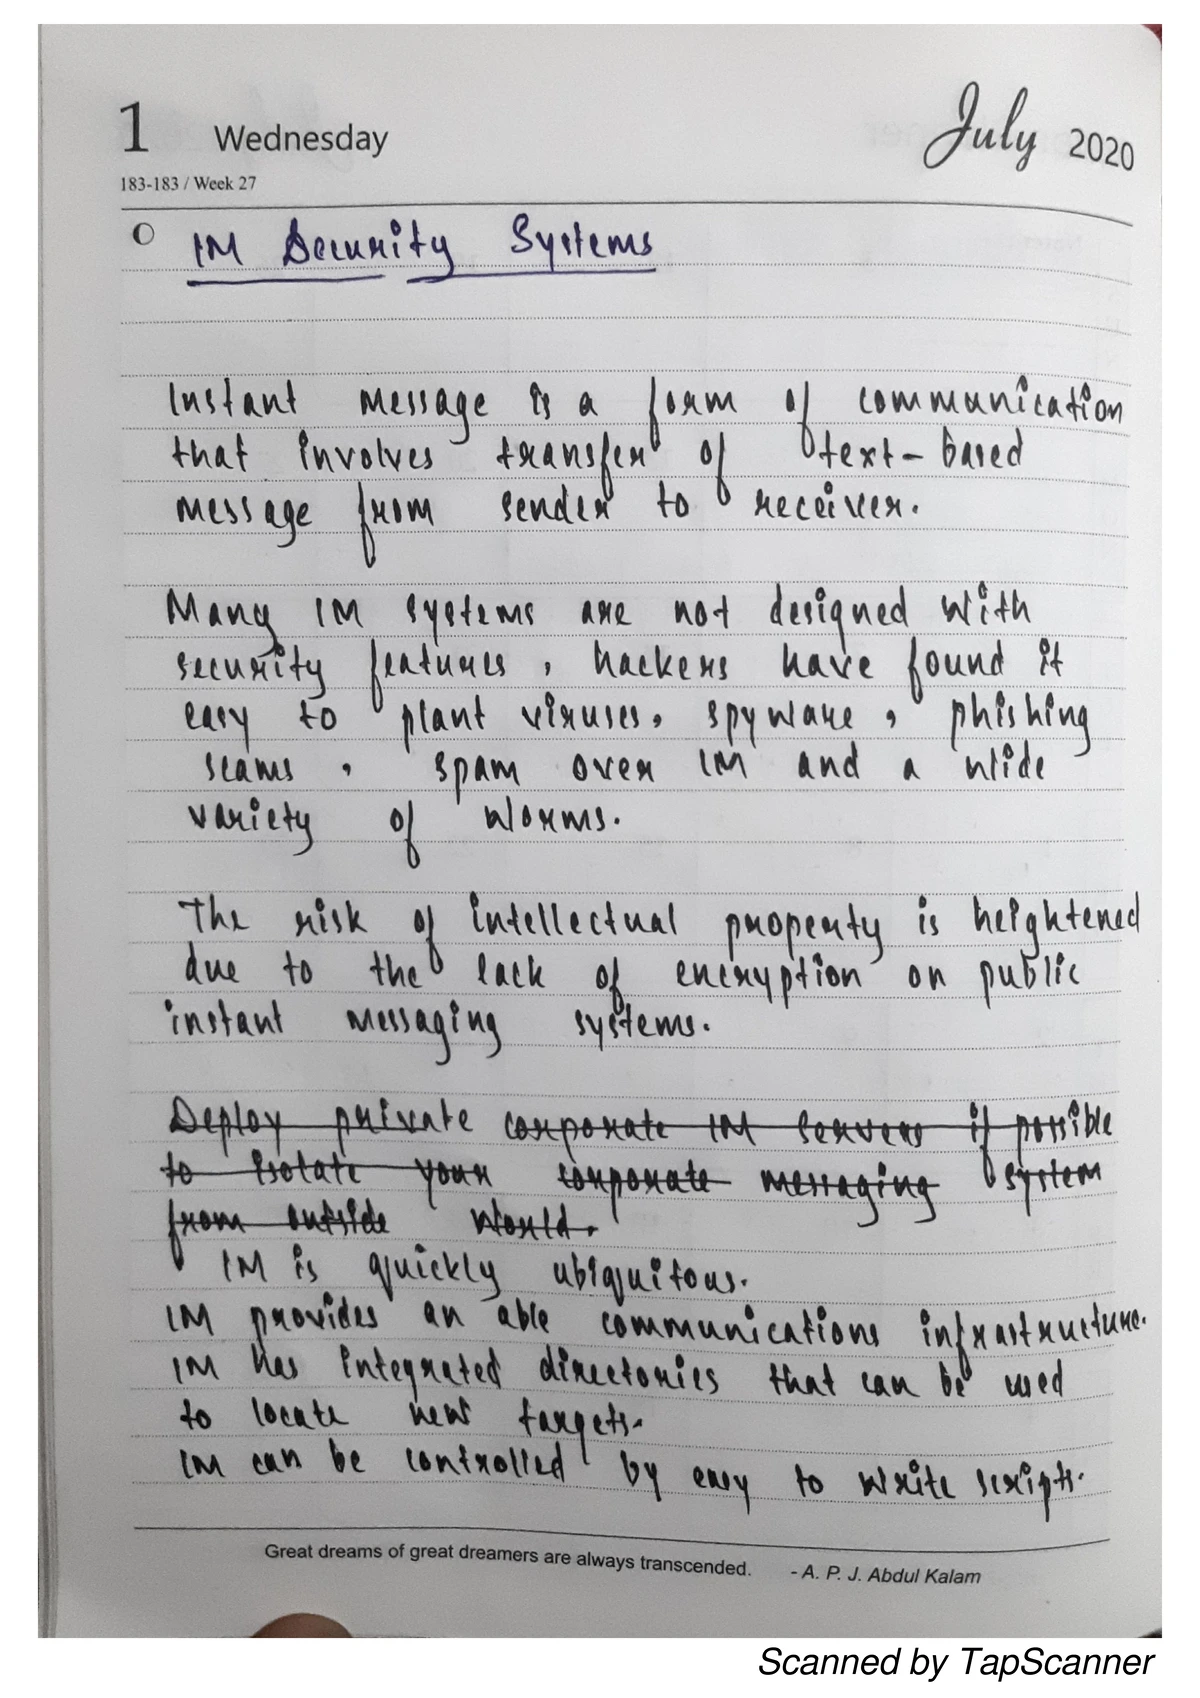 1 Wednesday July 2020
183-183 / Week 27
IM Security Systems
Instant message is a form of communication
that involves transfer of text-based
message from sender to receiver.
Many IM systems are not designed with
security features, hackers have found it
easy to plant viruses, spyware, phishing
scams, spam over IM and a wide
variety of worms.
The risk of intellectual property is heightened
due to the lack of encryption on public
instant messaging systems.
Deploy private corporate IM servers if possible
to isolate your corporate messaging system
from outside world.
IM is quickly ubiquitous.
IM provides an able communications infrastructure.
IM has integrated directories that can be used
to locate new targets.
IM can be controlled by easy to write scripts.
Great dreams of great dreamers are always transcended. - A. P. J. Abdul Kalam
Scanned by TapScanner